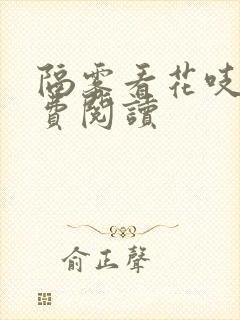 隔雾看花吱
費閱讀
俞正聲